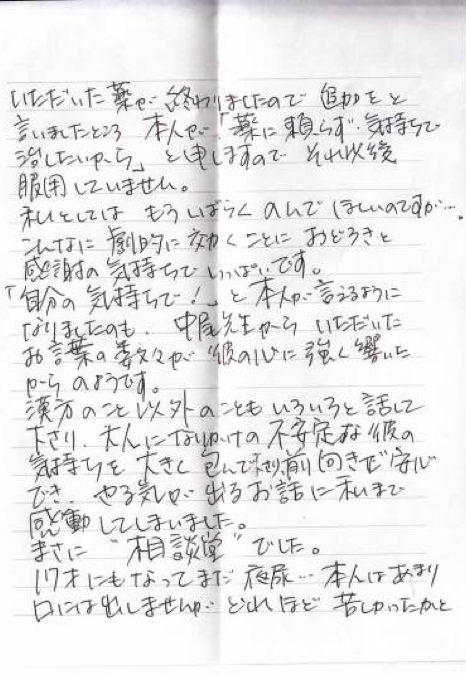 いただいた薬が終わりましたので 追加をと
言いましたところ 本人が「薬に頼らず気持ちで
治したいから」と申しますので それ以後
服用していません。
私としては もうしばらく のんで ほしいのですが…。
こんなに 劇的に 効くことに おどろきと
感謝の気持ちで いっぱいです。
「自分の 気持ちで!」と 本人が 言えるように
なりましたのも、中尾先生から いただいた
お言葉の数々が 彼の心に 強く 響いた
からのようです。
漢方のこと以外のことも いろいろと 話して
下さり、大人になりかけの 不安定な 彼の
気持ちを 大きく 包んで下さり、前向きで 安心
でき、やる気が 出る お話に 私まで
感動してしまいました。
まさに "相談堂" でした。
17才にもなって まだ 夜尿… 本人は あまり
口には 出しませんが どれほど 苦しかったかと